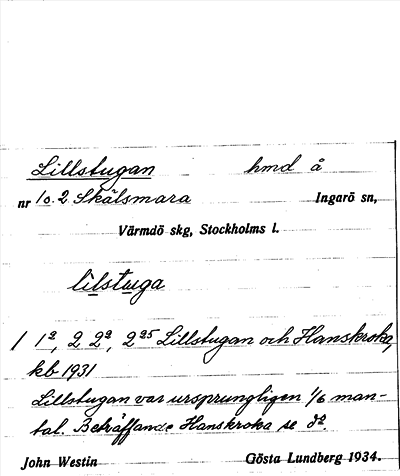 Lillstugan hmd å
nr 1 o. 2 Skälsmara Ingarö sn,
Värmdö skg, Stockholms l.
lilstuga
1 1², 2 2², 2²⁵ Lillstugan och Hanskroka,
kb 1931
Lillstugan var ursprungligen 1/6 man-
tal. Beträffande Hanskroka se d².
John Westin Gösta Lundberg 1934.